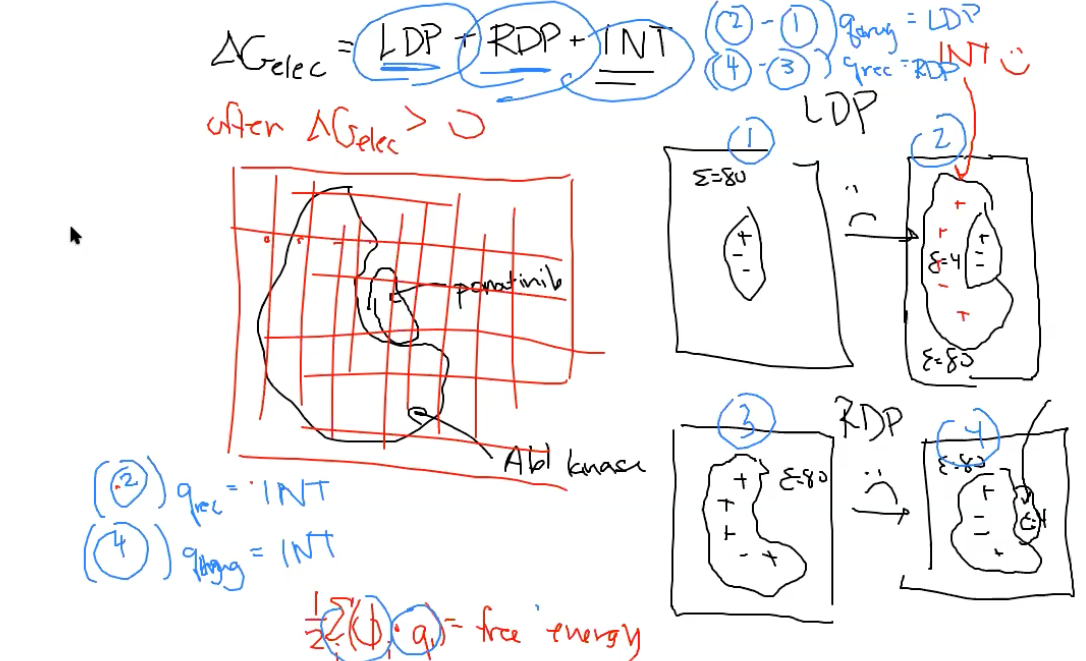 ΔGelec = LDP + RDP + INT
(② - ①) qdrug = LDP
(④ - ③) qrec = RDP
INT
often ΔGelec > 0
LDP
①
②
Σ=80
+
-
-
+
+
ε=4
-
+
+
-
Σ=80
ponatinib
Abl kinase
RDP
③
④
+
Σ=80
+
+
- +
Σ=80
+
-
-
+
ε=4
(②) qrec = INT
(④) qdrug = INT
1/2 Σ(ϕi · qi) = free energy